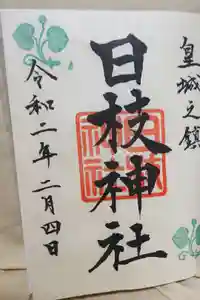 皇城之鎮
日枝神社
令和二年二月四日